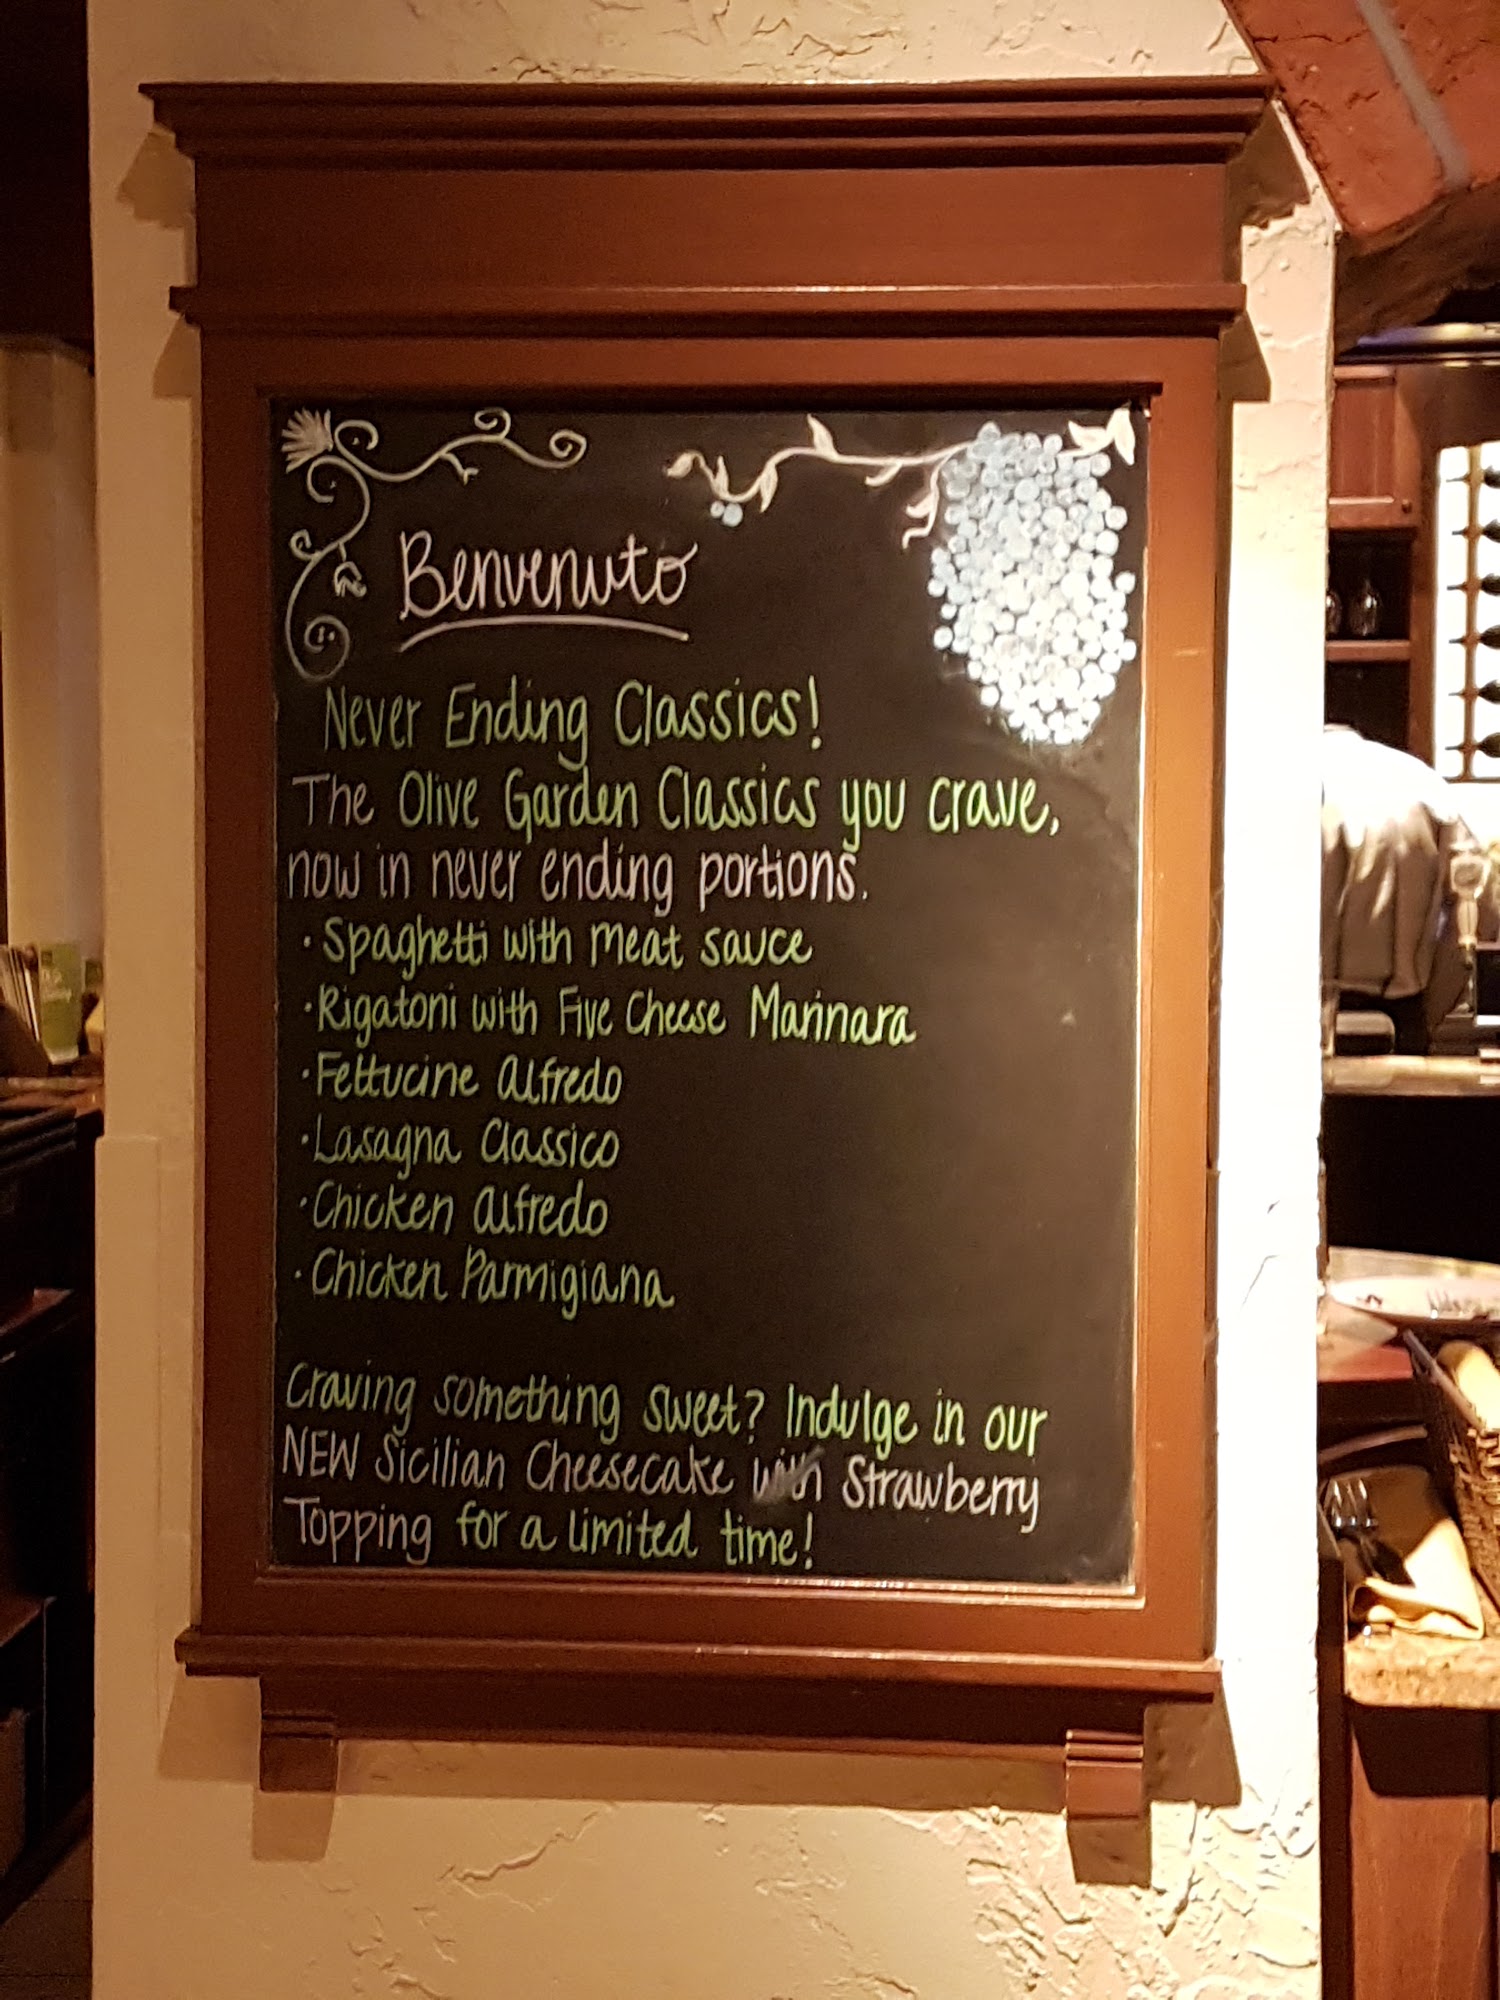 Benvenuto
Never Ending Classics!
The Olive Garden Classics you crave,
now in never ending portions.
· Spaghetti with meat sauce
· Rigatoni with Five Cheese Marinara
· Fettucine alfredo
· Lasagna Classico
· Chicken alfredo
· Chicken Parmigiana
Craving something sweet? Indulge in our
NEW Sicilian Cheesecake with Strawberry
Topping for a limited time!